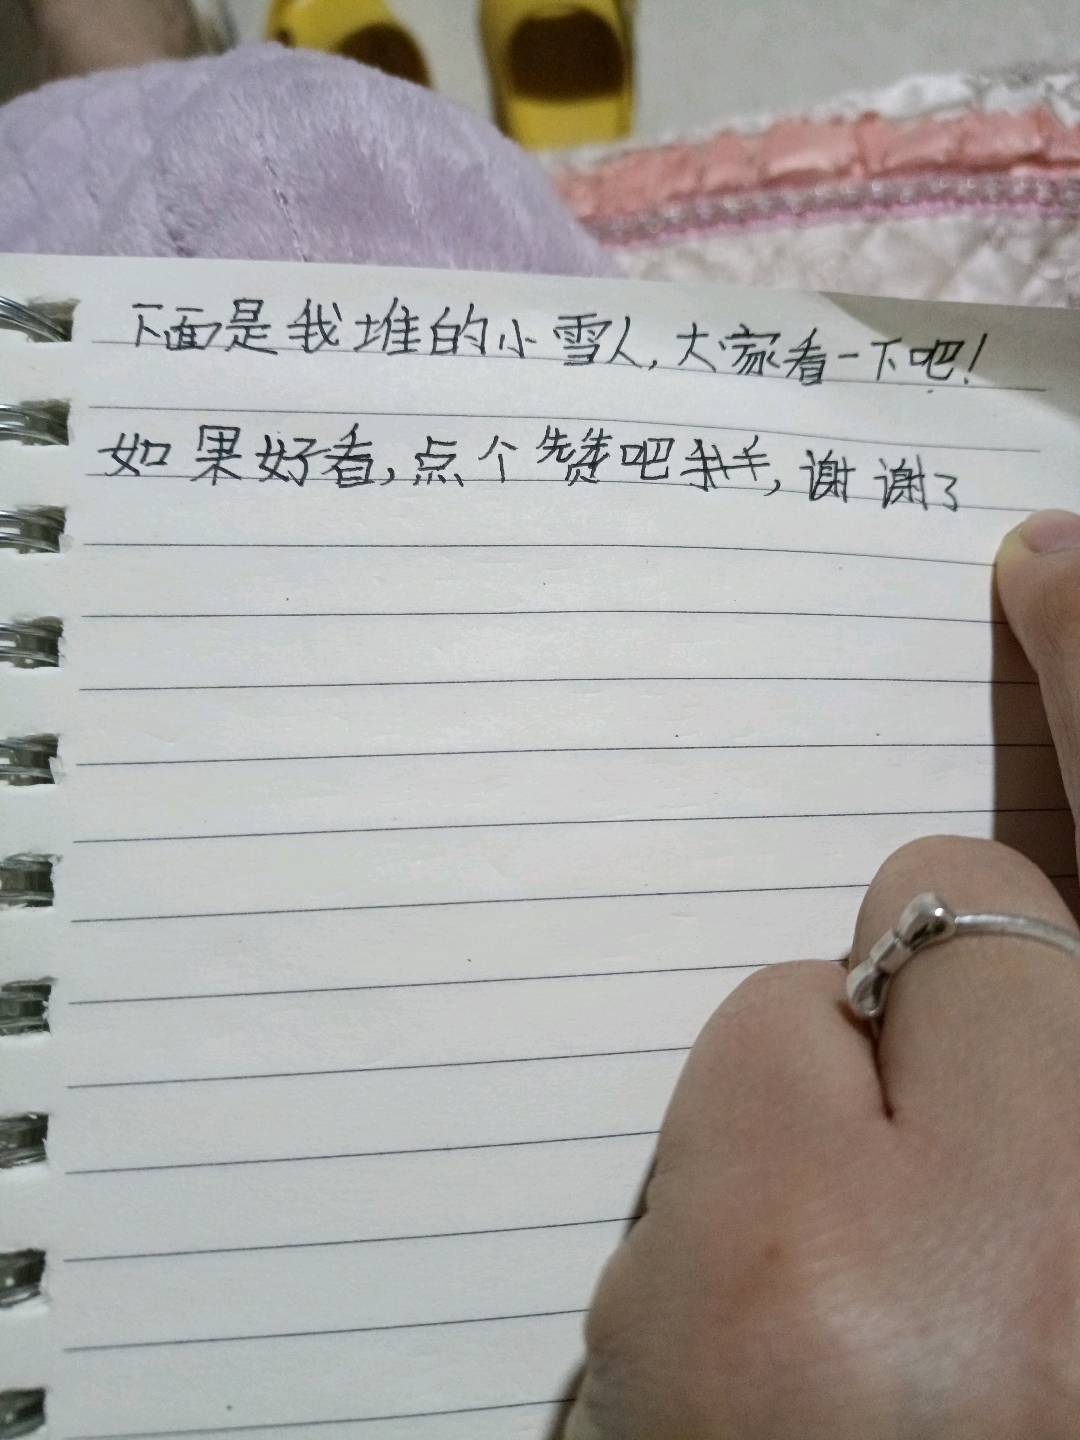 下面是我堆的小雪人,大家看一下吧!
如果好看,点个赞吧,谢谢了